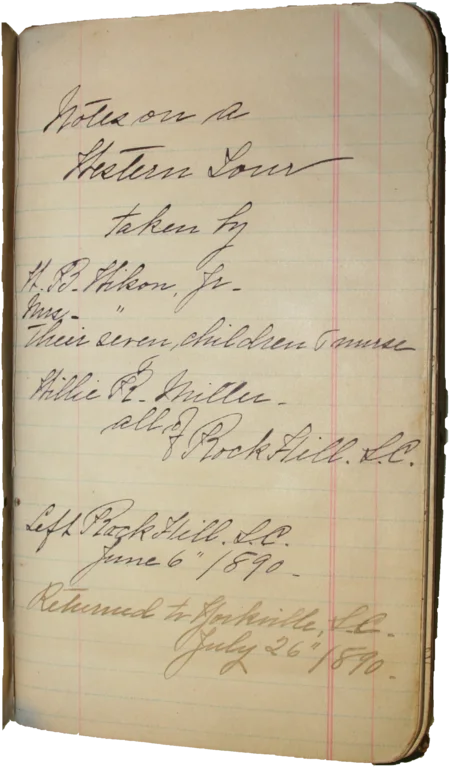 Notes on a
Western Tour
taken by
W. B. Wilson, Jr-
Mrs- "
Their seven children & nurse
&
Willie R. Miller-
all of
Rock Hill. S.C.
Left Rock Hill. S.C.
June 6" 1890-
Returned to Yorkville, S.C.
July 26" 1890-